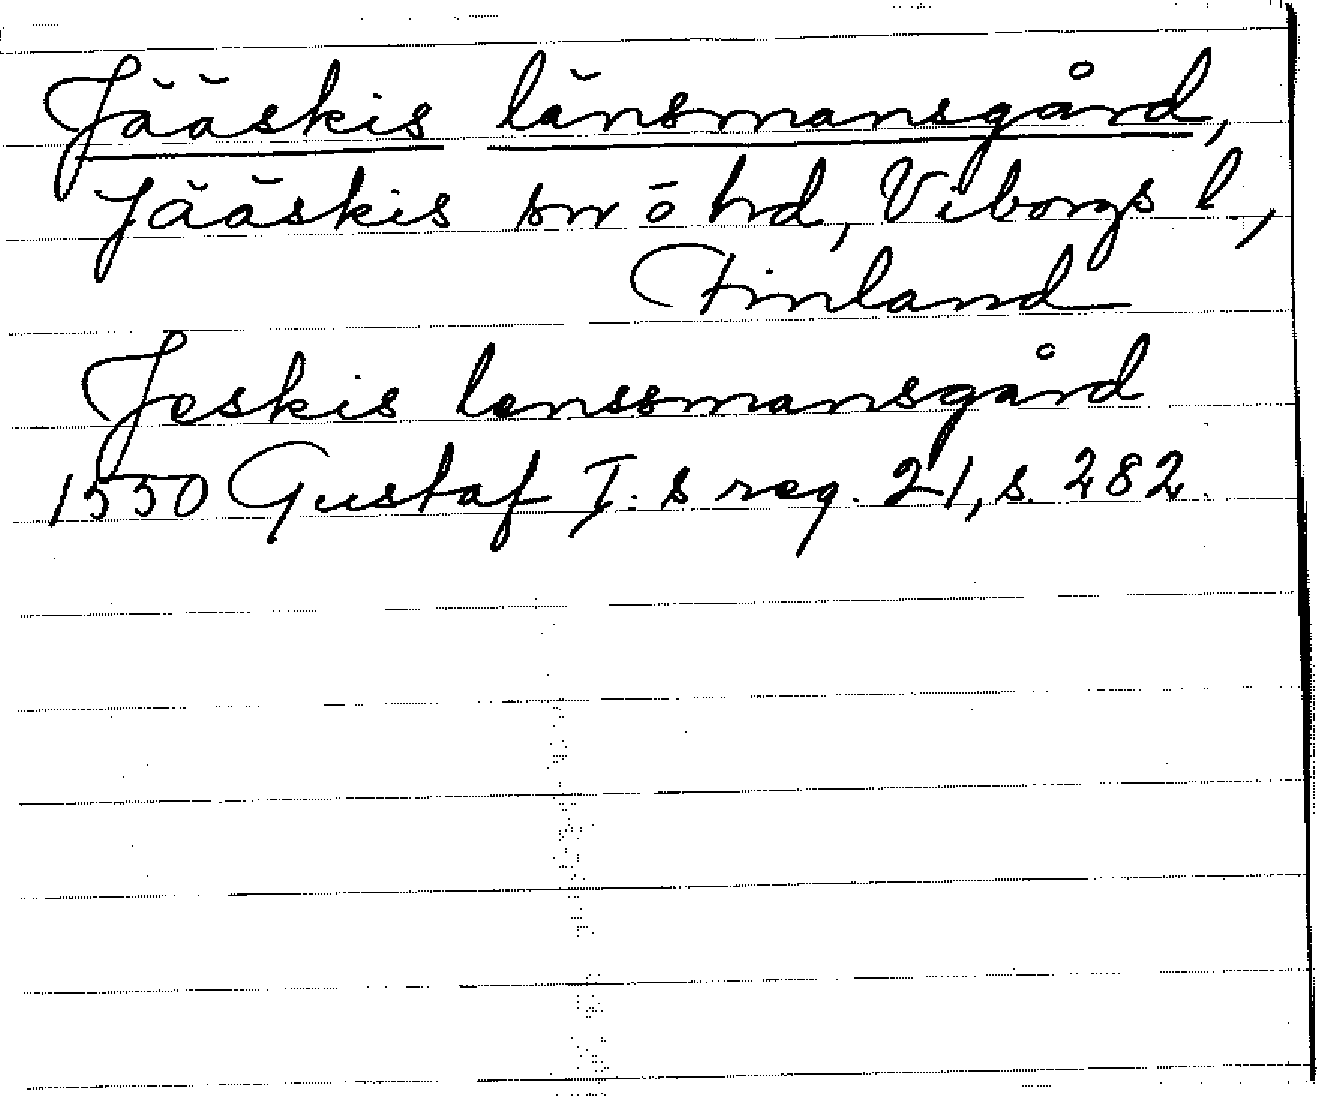 Jääskis länsmansgård,
Jääskis sn o hd, Viborgs l,
Finland
Jeskis lenssmansgård
1550 Gustaf I:s reg. 21, s. 282.